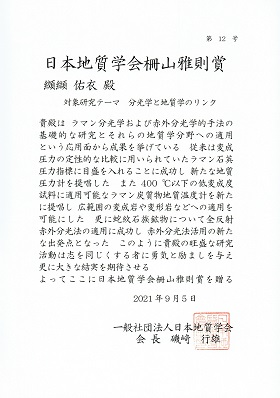 第 12 号
日本地質学会柵山雅則賞
纐纈 佑衣 殿
対象研究テーマ 分光学と地質学のリンク
貴殿は ラマン分光学および赤外分光学的手法の
基礎的な研究とそれらの地質学分野への適用
という応用面から成果を挙げている 従来は変成
圧力の定性的な比較に用いられていたラマン石英
圧力指標に目盛を入れることに成功し 新たな地質
圧力計を提唱した また 400 ℃以下の低変成度
試料に適用可能なラマン炭質物地質温度計を新た
に提唱し 広範囲の変成岩や変形岩などへの適用を
可能にした 更に蛇紋石族鉱物について全反射
赤外分光法の適用に成功し 赤外分光法活用の新た
な出発点となった このように貴殿の旺盛な研究
活動は志を同じくする者に勇気と励ましを与え
更に大きな結実を期待させる
よってここに日本地質学会柵山雅則賞を贈る
2021年９月５日
一般社団法人日本地質学会
会 長 磯﨑 行雄